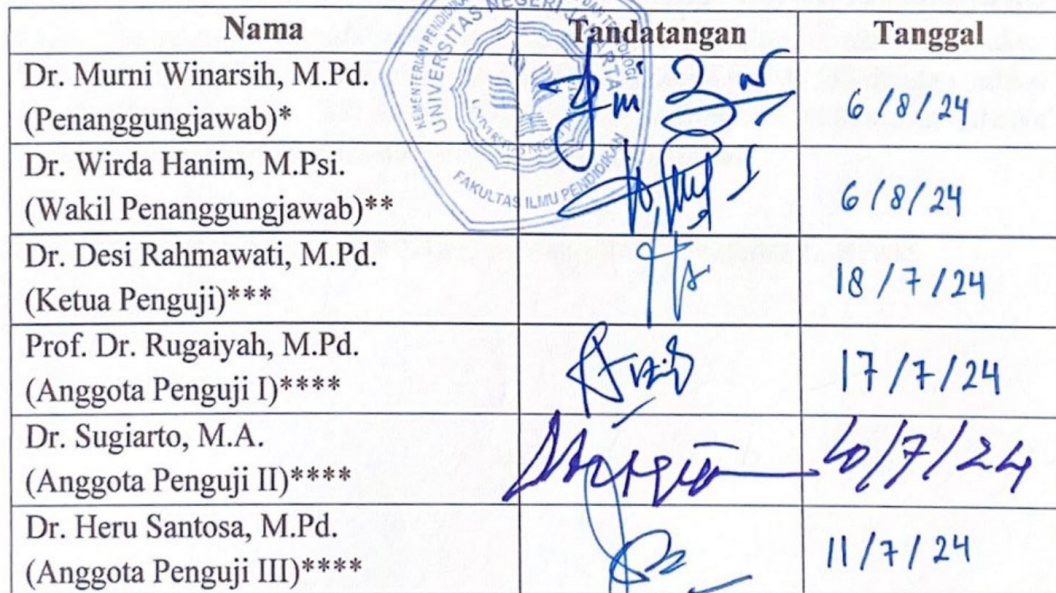 Nama Tandatangan Tanggal
Dr. Murni Winarsih, M.Pd.
(Penanggungjawab)* 6/8/24
Dr. Wirda Hanim, M.Psi.
(Wakil Penanggungjawab)** 6/8/24
Dr. Desi Rahmawati, M.Pd.
(Ketua Penguji)*** 18/7/24
Prof. Dr. Rugaiyah, M.Pd.
(Anggota Penguji I)**** 17/7/24
Dr. Sugiarto, M.A.
(Anggota Penguji II)**** /7/24
Dr. Heru Santosa, M.Pd.
(Anggota Penguji III)**** 11/7/24
UNIVERSITAS NEGERI
FAKULTAS ILMU PENDIDIKAN